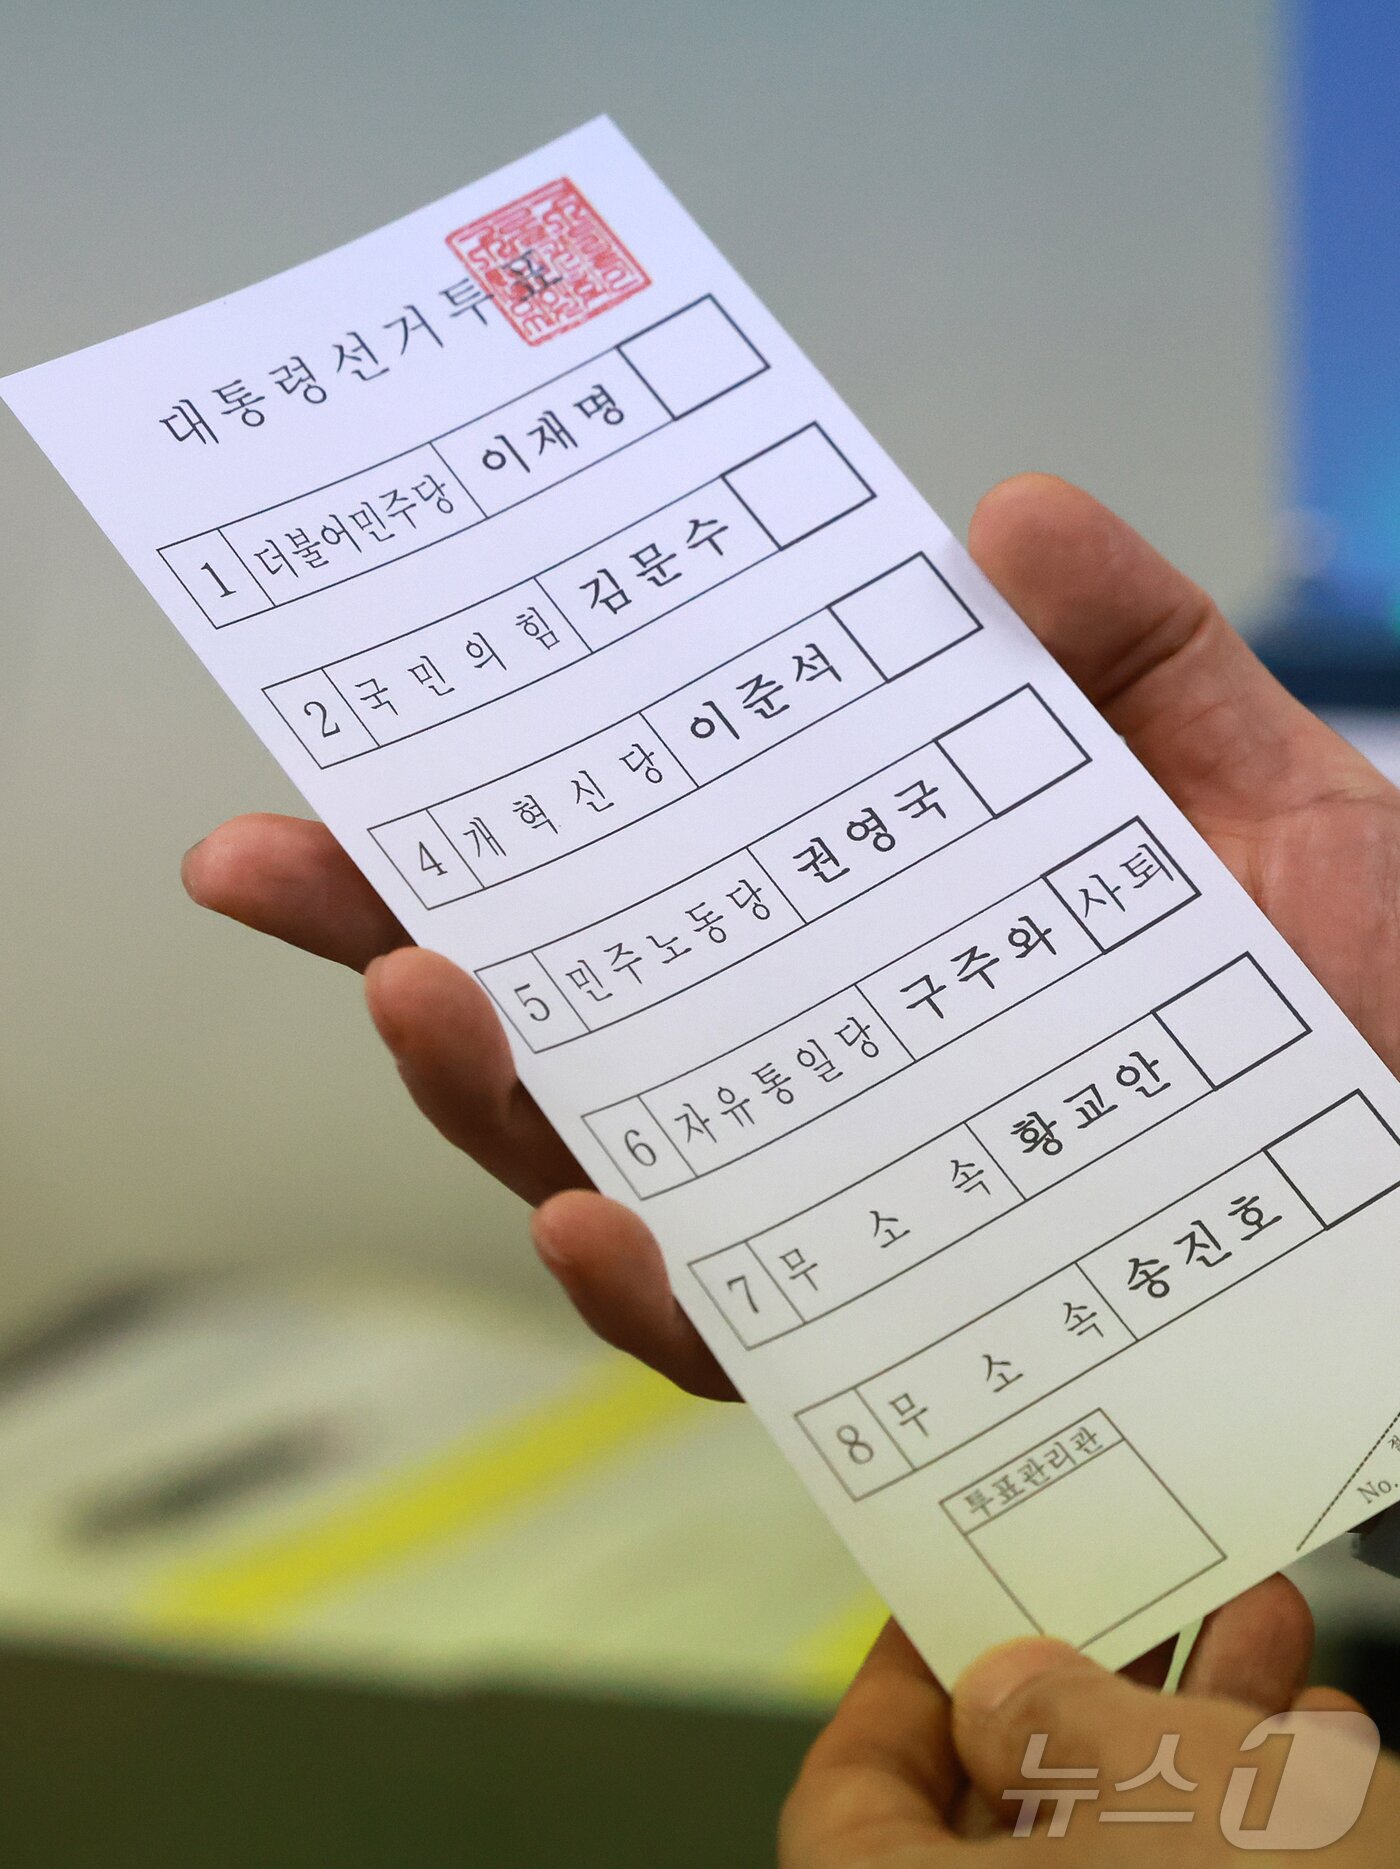 대통령선거투표
1 더불어민주당 이재명
2 국민의힘 김문수
4 개혁신당 이준석
5 민주노동당 권영국
6 자유통일당 구주와 사퇴
7 무소속 황교안
8 무소속 송진호
투표관리관
No.
뉴스1